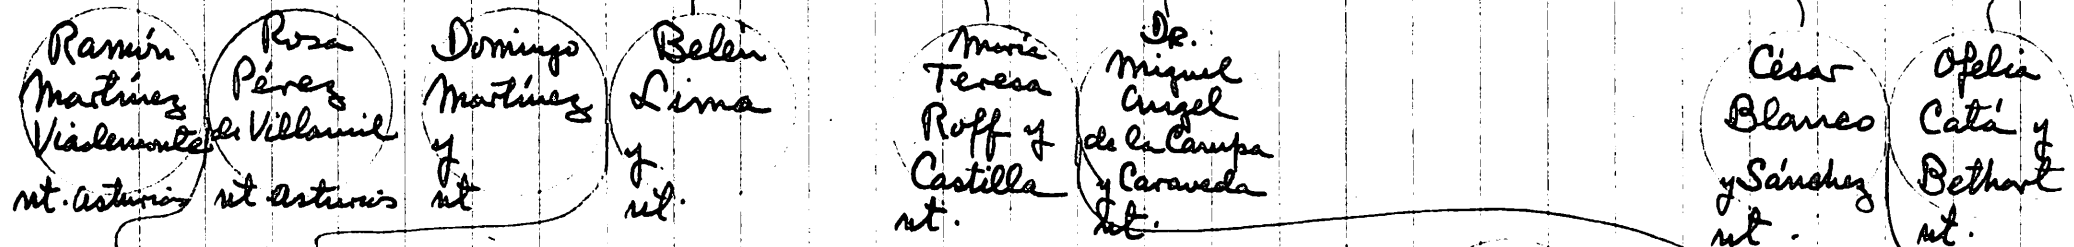 Ramón
Martínez
Viademonte
nt. Asturias
Rosa
Pérez
de Villamil
nt Asturias
Domingo
Martínez
y
nt
Belén
Lima
y
nt.
María
Teresa
Roff y
Castilla
nt.
Dr.
Miguel
Angel
de la Campa
y Caraveda
nt.
César
Blanco
y Sánchez
nt.
Ofelia
Catá y
Bethart
nt.